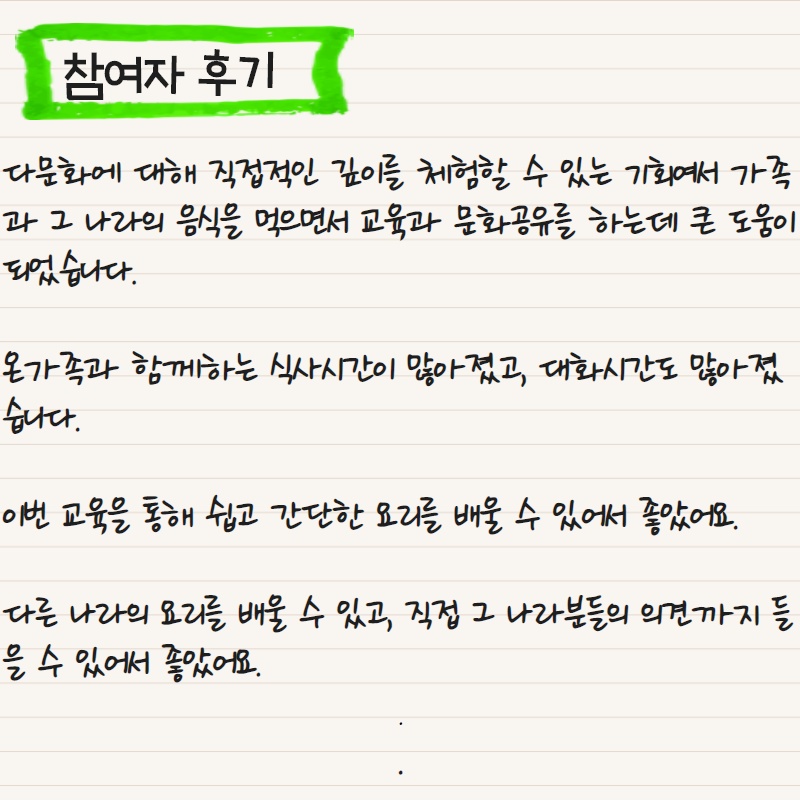 참여자 후기
다문화에 대해 직접적인 깊이를 체험할 수 있는 기회여서 가족
과 그 나라의 음식을 먹으면서 교육과 문화공유를 하는데 큰 도움이
되었습니다.
온가족과 함께하는 식사시간이 많아졌고, 대화시간도 많아졌
습니다.
이번 교육을 통해 쉽고 간단한 요리를 배울 수 있어서 좋았어요.
다른 나라의 요리를 배울 수 있고, 직접 그 나라분들의 의견까지 들
을 수 있어서 좋았어요.
.
.